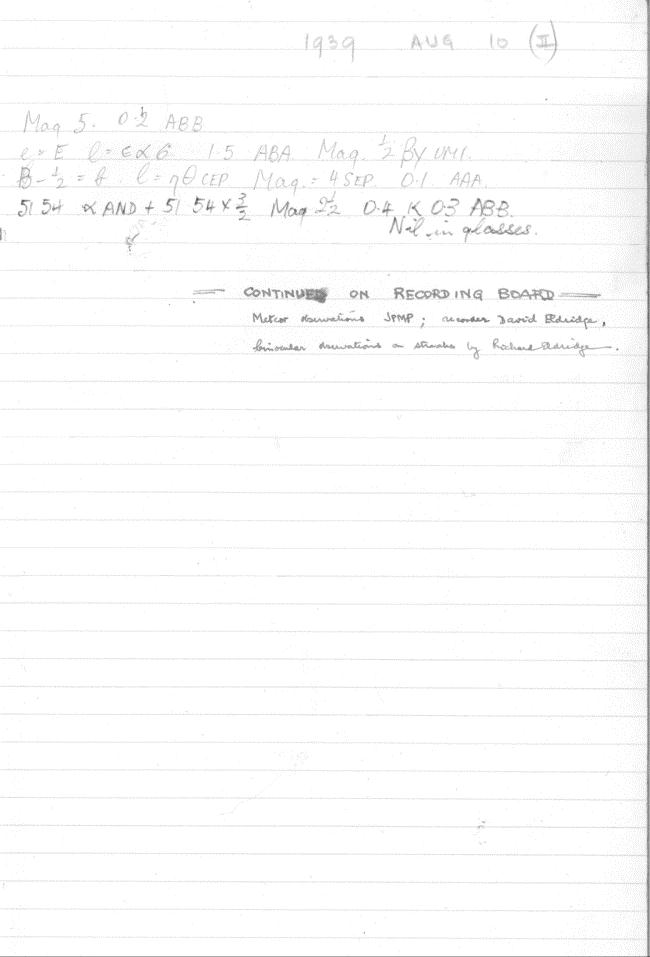 1939 AUG 10 (II)
Mag 5. 0.½ ABB
e = E l = ϵ α 6 1.5 ABA Mag. ½ βγ UMI.
B - ½ = b. l = ηθ CEP Mag. = 4 SEP. 0.1 AAA.
51 54 α AND + 51 54 × 3/2 Mag 2½ 0.4 K 0.3 ABB.
Nil in glasses.
CONTINUED ON RECORDING BOARD
Meteor observations JPMP; recorder David Eldridge,
binocular observations on streaks by Richard Eldridge.